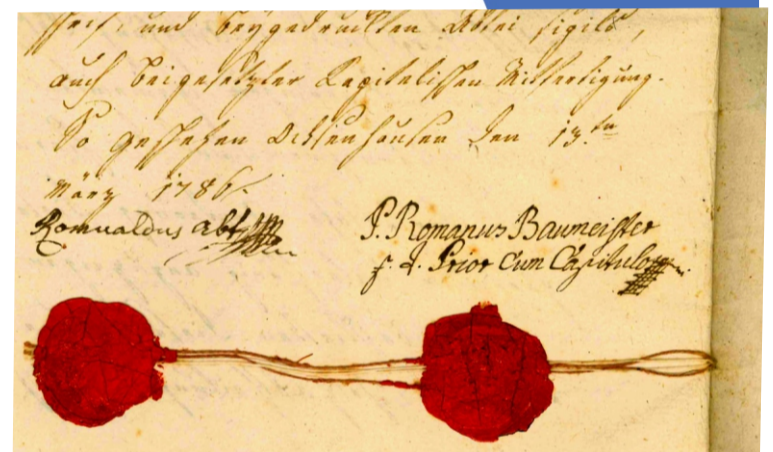 und beygedruckten Abtei sigils,
auch beigesetzter Kapitelischen Mitfertigung.
So geschehen Ochsenhausen den 13.ten
März 1786.
Romualdus Abt
P. Romanus Baumeister
p. t. Prior Cum Capitulo